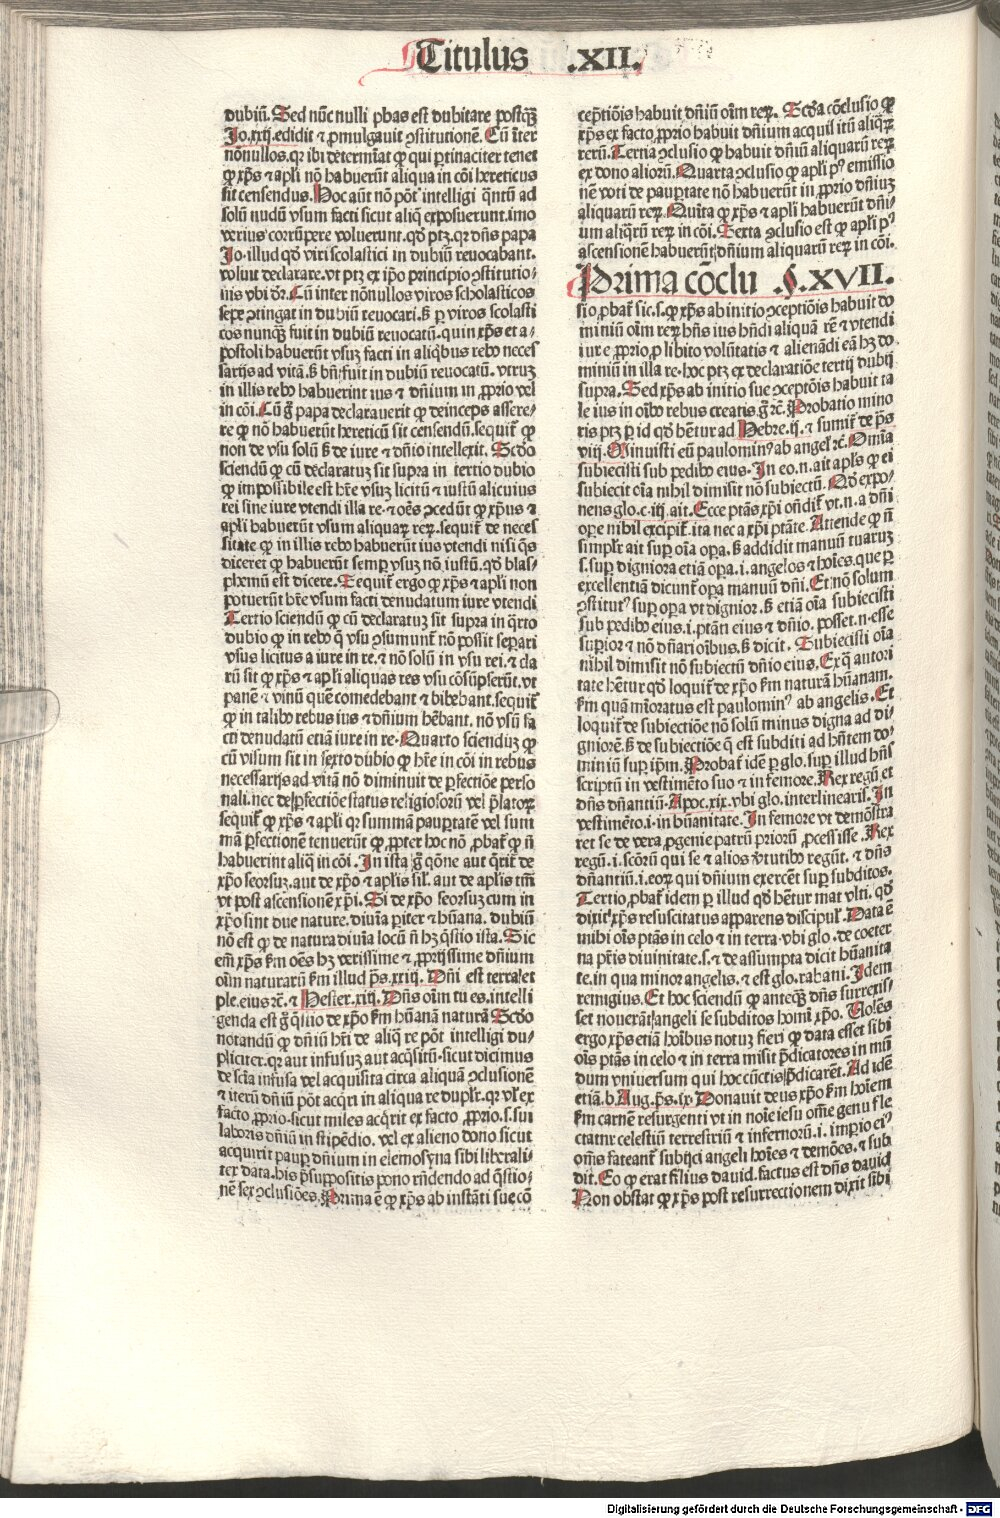 Titulus .XII.
dubiū. Sed nūc nulli ꝓbas est dubitare postqꝫ
Jo.xxij.edidit ⁊ ꝓmulgauit ꝯstitutionē. Cū īter
nōnullos.qꝛ ibi determīat ꝙ qui ꝑtinaciter tenet
ꝙ xp̄s ⁊ apli nō habuerūt aliqua in cōi hereticus
sit censendus. Hoc aūt nō pōt intelligi q̄ntū ad
solū nudū vsum facti sicut aliq̄ exposuerunt.imo
verius corrūpere voluerunt.qd̄ ptꝫ.qꝛ dn̄s papa
Jo.illud qd̄ viri scolastici in dubiū reuocabant.
voluit declarare.vt ptꝫ ex ip̄o principio ꝯstitutio-
nis vbi dr̄. Cū inter nōnullos viros scholasticos
sepe ꝯtingat in dubiū reuocari. ß ꝑ viros scolasti
cos nunqꝫ fuit in dubiū reuocatū.quin xp̄s et a-
postoli habuerūt vsuꝫ facti in aliqbus rebꝰ neces
sarijs ad vitā. ß bn̄ fuit in dubiū reuocatū. vtruꝫ
in illis rebꝰ habuerint ius ⁊ dn̄ium in ꝓprio vel
in cōi. Cū g̊ papa declarauerit ꝙ deinceps assere-
re ꝙ nō habuerūt hereticū sit censendū. sequit̄ ꝙ
non de vsu solū ß de iure ⁊ dn̄io intellexit. Scd̄o
sciendū ꝙ cū declaratuꝫ sit supra in tertio dubio
ꝙ impossibile est hr̄e vsuꝫ licitū ⁊ iustū alicuius
rei sine iure vtendi illa re.⁊ oēs ꝯcedūt ꝙ xp̄us ⁊
apli habuerūt vsum aliquaꝝ reꝝ. sequit̄ de neces
sitate ꝙ in illis rebꝰ habuerūt ius vtendi nisi q̄s
diceret ꝙ habuerūt semꝑ vsuꝫ nō iustū. qd̄ blas-
phemū est dicere. Sequit̄ ergo ꝙ xp̄s ⁊ apli non
potuerūt hr̄e vsum facti denudatum iure vtendi
Tertio sciendū ꝙ cū declaratuꝫ sit supra in q̄rto
dubio ꝙ in rebꝰ q̄ vsu ꝯsumunt̄ nō possit seꝑari
vsus licitus a iure in re. ⁊ nō solū in vsu rei. ⁊ cla
rū sit ꝙ xp̄s ⁊ apli aliquas res vsu cōsūpserūt. vt
panē ⁊ vinū quē comedebant ⁊ bibebant. sequit̄
ꝙ in talibꝰ rebus ius ⁊ dn̄ium hēbant. nō vsū fa
cti denudatū etiā iure in re. Quarto sciendūꝫ ꝙ
cū visum sit in sexto dubio ꝙ hr̄e in cōi in rebus
necessarijs ad vitā nō diminuit de ꝑfectiōe perso
nali. nec de ꝑfectiōe status religiosorū vel p̄latoꝝ
sequit̄ ꝙ xp̄s ⁊ apli qꝛ summā pauꝑtatē vel sum
mā ꝑfectionē tenuerūt ꝙ ꝓpter hoc nō ꝓbat̄ ꝙ n̄
habuerint aliq̄ in cōi. In ista g̊ qōne aut q̄rit̄ de
xp̄o seorsuꝫ. aut de xp̄o ⁊ aplis sil̄. aut de aplis tm̄
vt post ascensionē xp̄i. Si de xp̄o seorsuꝫ cum in
xp̄o sint due nature. diuīa ꝑiter ⁊ hūana. dubiū
nō est ꝙ de natura diuīa locū n̄ hꝫ q̄stio ista. Sic
em̄ xp̄s fm̄ oēs hꝫ verissime ⁊ ꝓprijssime dn̄ium
oīm naturarū fm̄ illud p̄s.xxiij. Dn̄i est terra ⁊
ple.eius ⁊c. ⁊ Hester.xiij. Dn̄s oīm tu es. intelli
genda est g̊ q̄stio de xp̄o fm̄ hūanā naturā Scd̄o
notandū ꝙ dn̄iū hr̄i de aliq̄ re pōt intelligi du-
pliciter. qꝛ aut infusuꝫ aut acq̄sitū. sicut dicimus
de scīa infusa vel acquisita circa aliquā ꝯclusionē
⁊ iterū dn̄iū pōt acq̄ri in aliqua re duplr̄. qꝛ vl̓ ex
facto ꝓprio. sicut miles acq̄rit ex facto ꝓprio. s. sui
laboris dn̄iū in stipēdio. vel ex alieno dono sicut
acquirit pauꝑ dn̄ium in elemosyna sibi liberali-
ter data. his p̄suppositis pono rn̄dendo ad q̄stio-
nē sex ꝯclusiōes. Prima ē ꝙ xp̄s ab instāti sue cō
ceptiōis habuit dn̄iū oīm reꝝ. Scd̄a cōclusio ꝙ
xp̄s ex facto ꝓprio habuit dn̄ium acquisitū aliq̄ꝝ
rerū. Tertia ꝯclusio ꝙ habuit dn̄iū aliquarū reꝝ
ex dono aliorū. Quarta ꝯclusio ꝙ apli pꝰ emissio
nē voti de pauꝑtate nō habuerūt in ꝓprio dn̄iuꝫ
aliquarū reꝝ. Quīta ꝙ xp̄s ⁊ apli habuerūt dn̄i-
um aliq̄rū reꝝ in cōi. Sexta ꝯclusio est ꝙ apli pꝰ
ascensionē habuerūt dn̄ium aliquarū reꝝ in cōi.
Prima cōclu .§.XVII.
sio ꝓbat̄ sic. s. ꝙ xp̄s ab initio ꝯceptiōis habuit do
miniū oīm reꝝ hn̄s ius hn̄di aliquā rē ⁊ vtendi
iure ꝓprio ꝓ libito volūtatis ⁊ alienādi eā hꝫ do
miniū in illa re. hoc ptꝫ ex declaratiōe tertij dubij
supra. Sed xp̄s ab initio sue ꝯceptōis habuit ta
le ius in oībꝰ rebus creatis. g̊ ⁊c. Probatio mino
ris ptꝫ ꝑ id qd̄ hētur ad Hebre.ij. ⁊ sumit̄ de p̄s
viij. Minuisti eū paulominꝰ ab angel̓ ⁊c. Omīa
subiecisti sub pedibꝰ eius. In eo.n.ait apl̓s ꝙ ei
subiecit oīa nihil dimisit nō subiectū. Qd̄ expo-
nens glo.c.iij.ait. Ecce ptās xp̄i on̄dit̄ vt.n.a dn̄i
oꝑe nihil excipit̄. ita nec a xp̄i ptāte. Attende ꝙ n̄
simplr̄ ait suꝑ oīa oꝑa. ß addidit manuū tuaruꝫ
s. suꝑ digniora etiā oꝑa.i.angelos ⁊ hoīes. que ꝑ
excellentiā dicunt̄ oꝑa manuū dn̄i. Et nō solum
ꝯstitutꝰ suꝑ oꝑa vt dignior. ß etiā oīa subiecisti
sub pedibꝰ eius.i.ptāti eius ⁊ dn̄io. posset.n.esse
suꝑior ⁊ nō dn̄ari oībus. ß dicit. Subiecisti oīa
nihil dimisit nō subiectū dn̄io eius. Ex q̄ autori
tate hētur qd̄ loquit̄ de xp̄o fm̄ naturā hūanam.
fm̄ quā minoratus est paulominꝰ ab angelis. Et
loquit̄ de subiectiōe nō solū minus digna ad di-
gniorē. ß de subiectiōe q̄ est subditi ad hn̄tem do-
miniū suꝑ ip̄m. Probat̄ idē ꝑ glo. suꝑ illud hn̄s
scriptū in vestimēto suo ⁊ in femore. Rex regū et
dn̄s dn̄antiū. Apoc.xix. vbi glo. interlinearis. In
vestimēto.i.in hūanitate. In femore vt demōstra
ret se de vera ꝓgenie patrū priorū ꝓcessisse. Rex
regū.i.scōrū qui se ⁊ alios v̓tutibꝰ regūt. ⁊ dn̄s
dn̄antiū.i.eoꝝ qui dn̄ium exercēt suꝑ subditos.
Tertio ꝓbat̄ idem ꝑ illud qd̄ hētur mat vlti. qd̄
dixit xp̄s resuscitatus apparens discipul̓. Data ē
mihi oīs ptās in celo ⁊ in terra. vbi glo. de coeter
na pr̄is diuinitate. s. ⁊ de assumpta dicit hūanita
te. in qua minor angelis. ⁊ est glo. rabani. Idem
remigius. Et hoc sciendū ꝙ anteqꝫ dn̄s surrexis-
set nouerāt angeli se subditos homī xp̄o. Volēs
ergo xp̄s etiā hoībus notuꝫ fieri ꝙ data esset sibi
oīs ptās in celo ⁊ in terra misit p̄dicatores in mū
dum vniuersum qui hoc cūctis p̄dicarēt. Ad idē
etiā.b.Aug.p̄s.ix. Donauit deus xp̄o fm̄ hoīem
fm̄ carnē resurgenti vt in noīe iesu om̄e genu fle
ctatur celestiū terrestriū ⁊ infernorū.i.imꝑio eiꝰ
om̄s fateant̄ subijci angeli hoīes ⁊ demōes. ⁊ sub
dit. Eo ꝙ erat filius dauid. factus est dn̄s dauid
Non obstat ꝙ xp̄s post resurrectionem dixit sibi
Digitalisierung gefördert durch die Deutsche Forschungsgemeinschaft - DFG